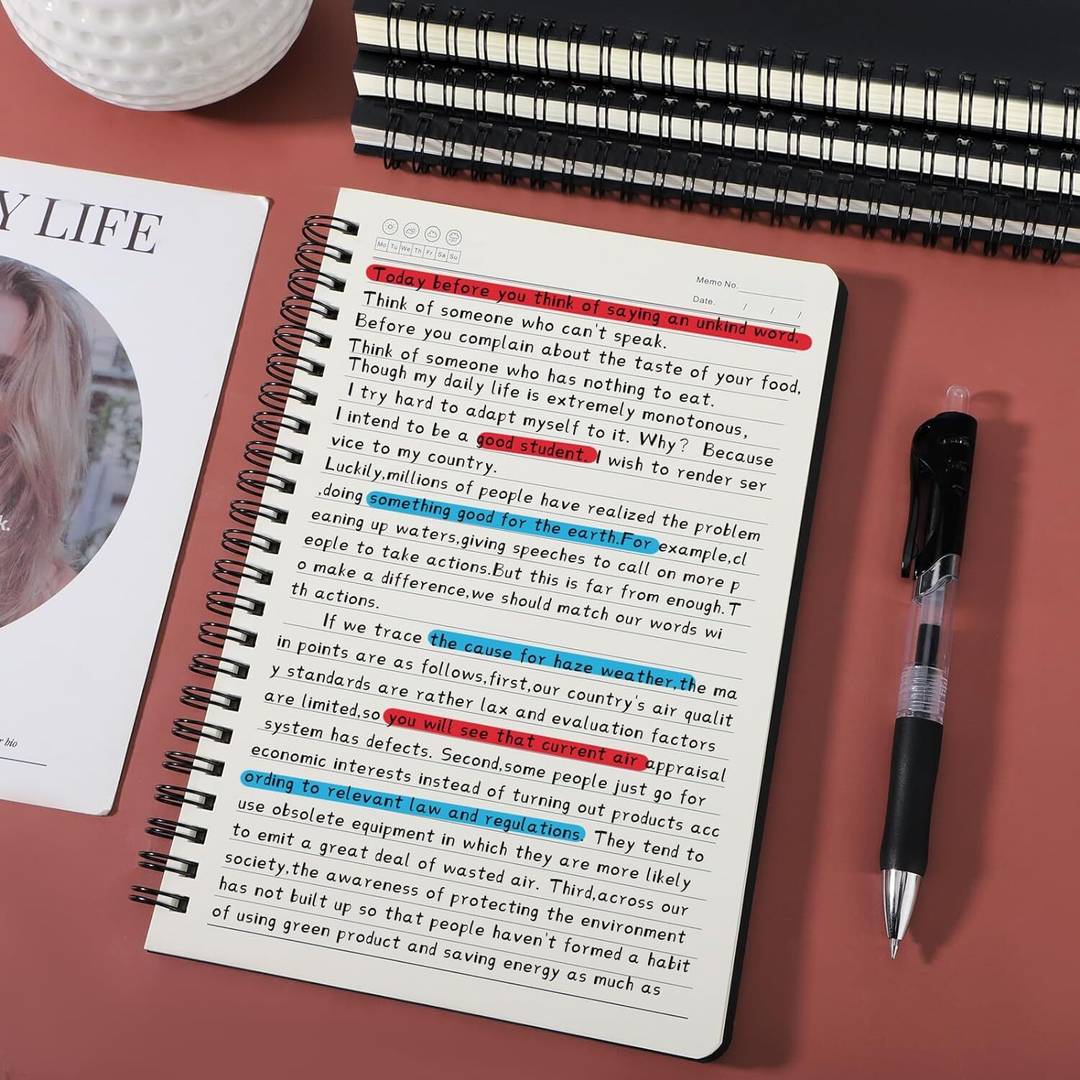 Y LIFE
k.
r bio
Mo Tu We Th Fr Sa Su
Memo No.
Date. / / /
Today before you think of saying an unkind word,
Think of someone who can't speak.
Before you complain about the taste of your food,
Think of someone who has nothing to eat.
Though my daily life is extremely monotonous,
I try hard to adapt myself to it. Why? Because
I intend to be a good student. I wish to render ser
vice to my country.
Luckily,millions of people have realized the problem
,doing something good for the earth.For example,cl
eaning up waters,giving speeches to call on more p
eople to take actions.But this is far from enough.T
o make a difference,we should match our words wi
th actions.
If we trace the cause for haze weather,the ma
in points are as follows,first,our country's air qualit
y standards are rather lax and evaluation factors
are limited,so you will see that current air appraisal
system has defects. Second,some people just go for
economic interests instead of turning out products acc
ording to relevant law and regulations. They tend to
use obsolete equipment in which they are more likely
to emit a great deal of wasted air. Third,across our
society,the awareness of protecting the environment
has not built up so that people haven't formed a habit
of using green product and saving energy as much as